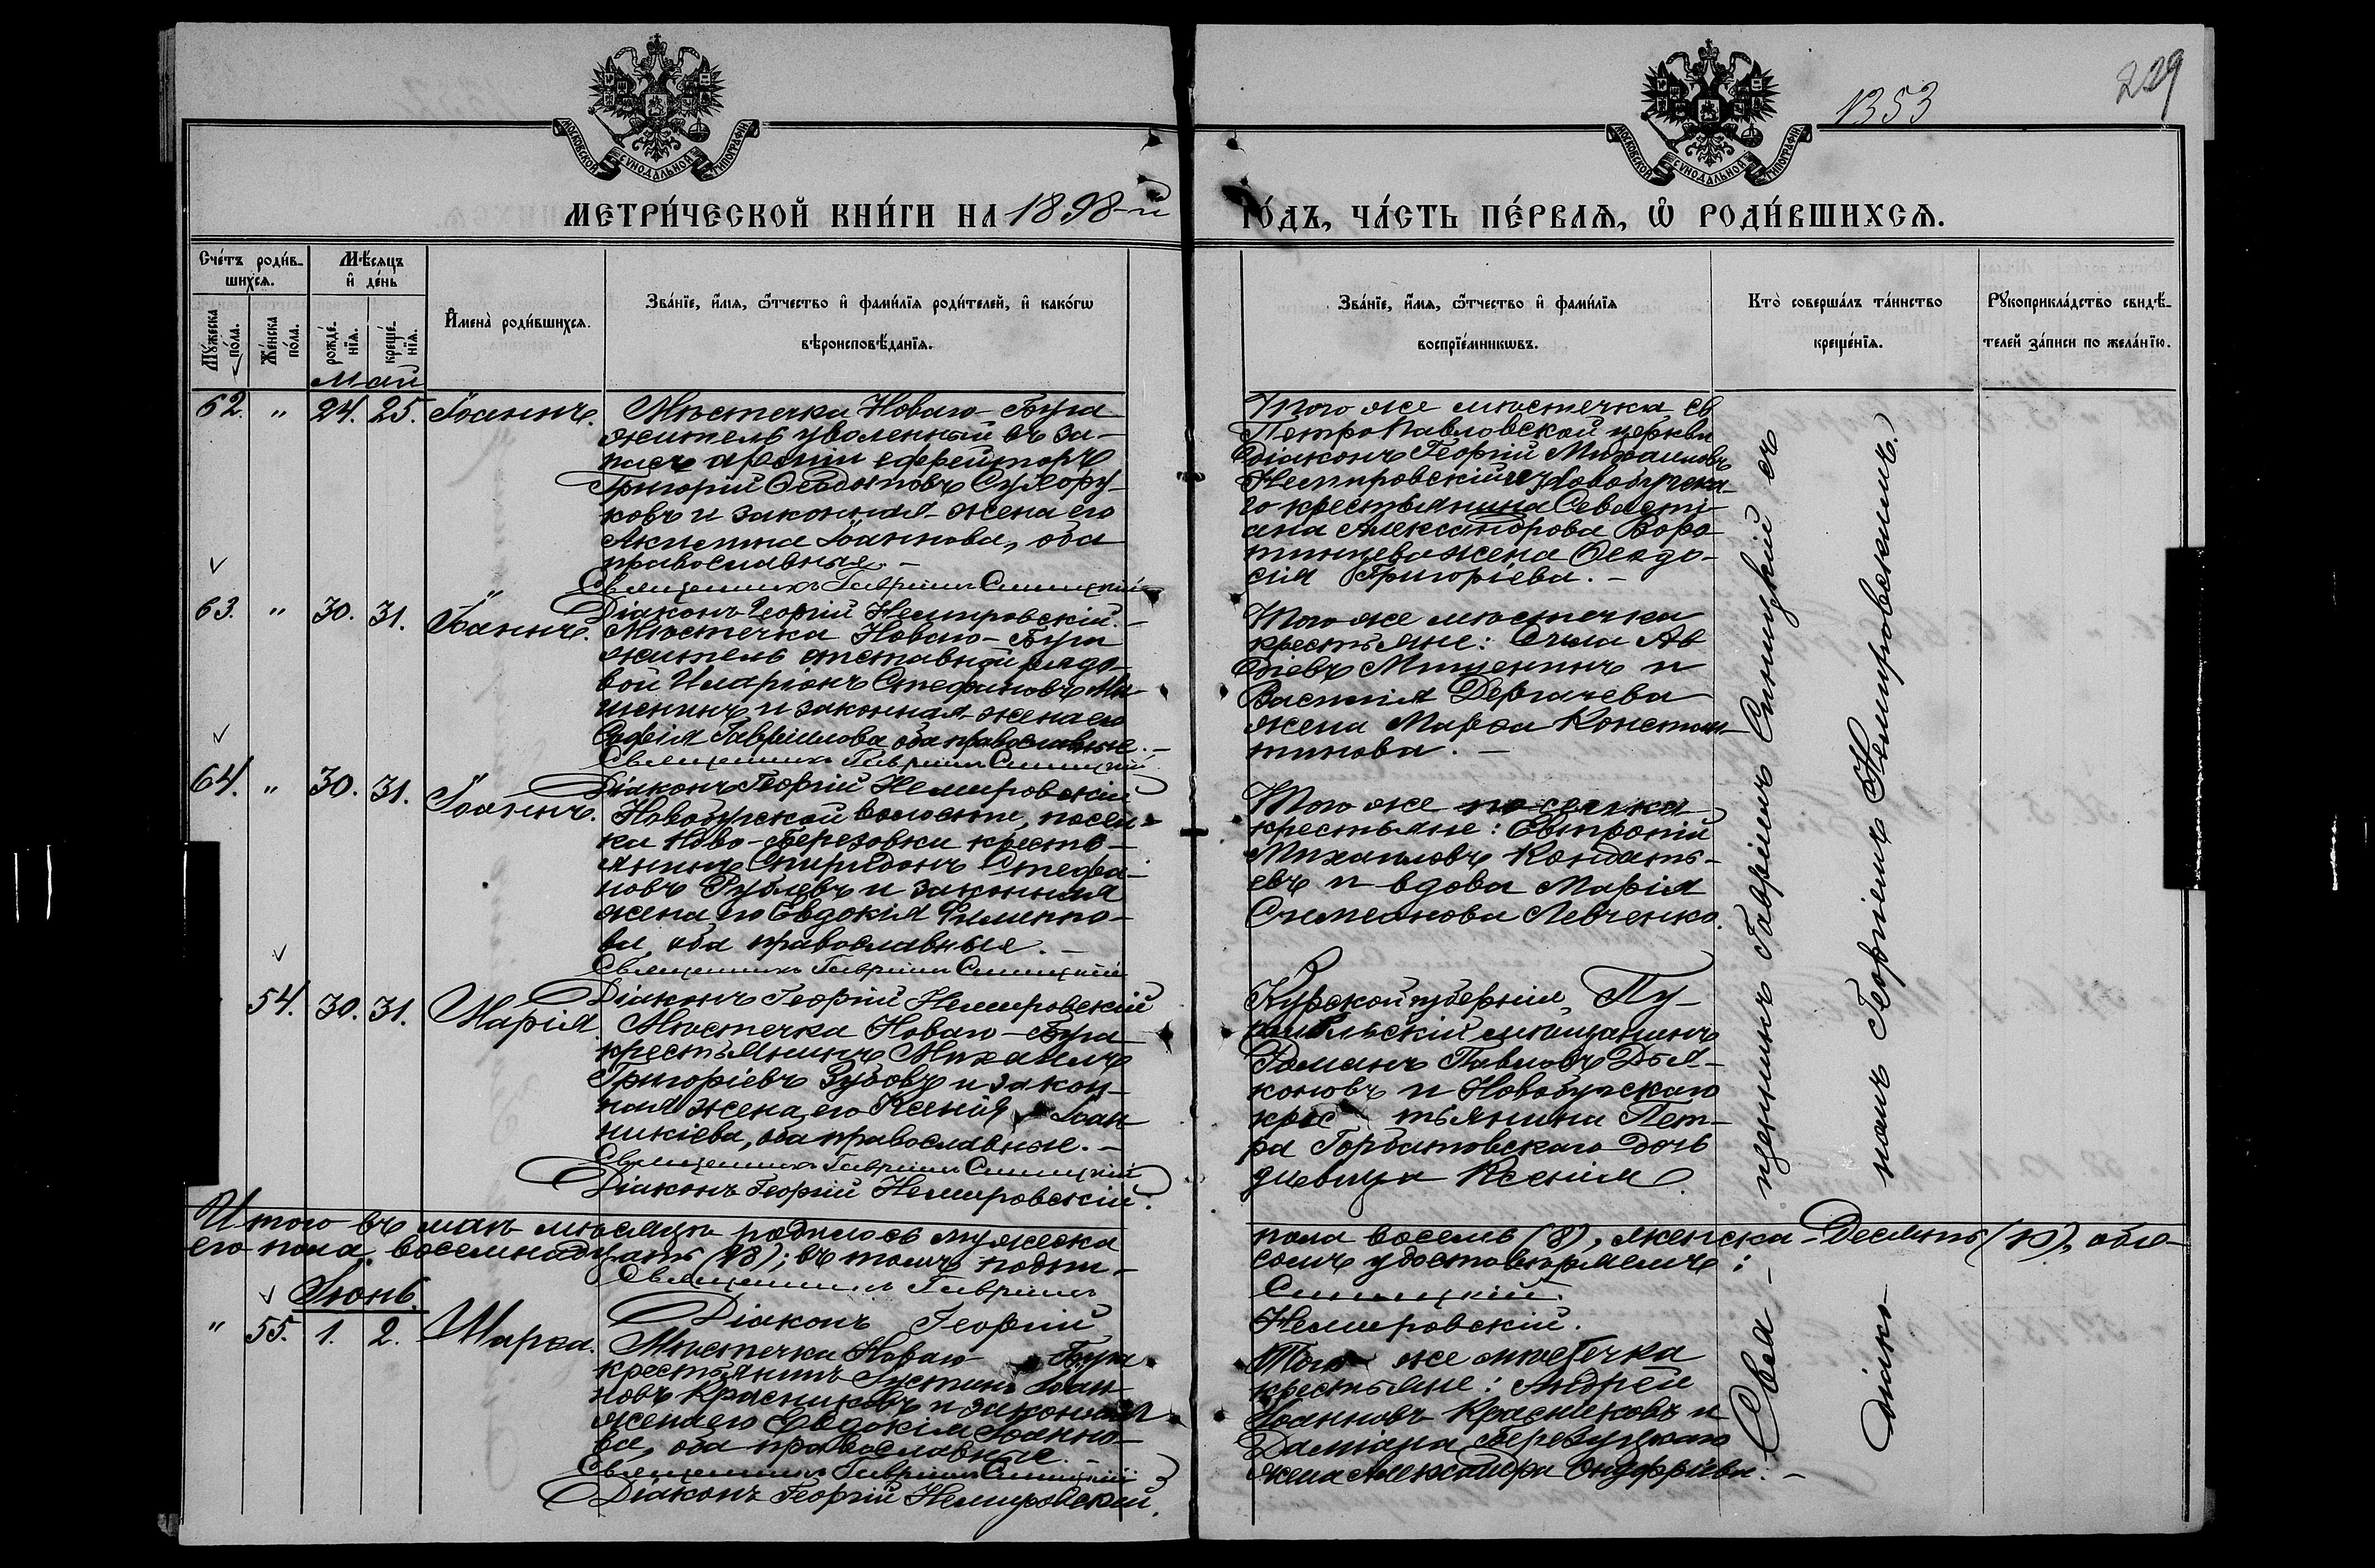 1353
229
МОСКОВСКОЙ СѴНОДАЛЬНОЙ ТИПОГРАФІИ
МОСКОВСКОЙ СѴНОДАЛЬНОЙ ТИПОГРАФІИ
МЕТРИ́ЧЕСКОЙ КНИ́ГИ НА 1898-й ГО́ДЪ, ЧА́СТЬ ПЕ́РВАѦ, Ѡ РОДИ́ВШИХСѦ.
Сче́тъ роди́в-
шихсѧ.
Мѣ́сѧцъ
и҆ де́нь
Му́жеска по́ла.
Же́нска по́ла.
рожде́нїѧ.
креще́нїѧ.
И҆мена̀ роди́вшихсѧ.
Зва́нїе, и҆́мѧ, ѻ҆́тчество и҆ фами́лїѧ роди́телей, и҆ како́гѡ
вѣроисповѣ́данїѧ.
Зва́нїе, и҆́мѧ, ѻ҆́тчество и҆ фами́лїѧ
воспрїе́мникѡвъ.
Кто̀ соверша́лъ та́инство
креще́нїѧ.
Рꙋкоприкла́дство свидѣ́-
телей за́писи по жела́нїю.
Май
62. " 24. 25. Іоаннъ.
Мѣстечка Новаго-Буга
житель уволенный въ за-
пасъ арміи ефрейторъ
Григорій Ѳеодотовъ Сухору-
ковъ и законная жена его
Акилина Іоаннова, оба
православные.-
Священникъ Гавріилъ Синицкій
Діаконъ Георгій Немировскій.-
Того же мѣстечка св
Петропавловской церкви
Діаконъ Георгій Михаиловъ
Немировскій и Новобугска-
го крестьянина Севасті-
ана Александрова Воро-
тинцева жена Ѳеодо-
сія Григоріева.-
63. " 30. 31. Іоаннъ.
Мѣстечка Новаго-Буга
житель отставной рядо-
вой Иларіонъ Стефановъ Ми-
шенинъ и законная жена его
Софія Гавріилова, оба православные.-
Священникъ Гавріилъ Синицкій
Діаконъ Георгій Немировскій
Того же мѣстечка
крестьяне: Сила Ав
діевъ Мишенинъ и
Василія Дергачева
жена Марѳа Констан-
тинова.-
64. " 30. 31. Іоаннъ.
Новобугской волости, посел-
ка Ново-Березовки кресть-
янинъ Спиридонъ Стефа-
новъ Рублевъ и законная
жена его Евдокія Филиппо-
ва, оба православные.-
Священникъ Гавріилъ Синицкій
Діаконъ Георгій Немировскій
Того же поселка
крестьяне: Евтропій
Михаиловъ Кондать-
евъ и вдова Марія
Симеонова Левченко.
54. 30. 31. Марія
Мѣстечка Новаго-Буга
крестьянинъ Михаилъ
Григоріевъ Зубовъ и закон-
ная жена его Ксенія Іоан-
никіева, оба православные.-
Священникъ Гавріилъ Синицкій
Діаконъ Георгій Немировскій.
Курской губерніи, Пу-
тивльскій мѣщанинъ
Романъ Павловъ Дья-
коновъ и Новобугскаго
крес тьянина Пет-
ра Горбатовскаго дочь
дѣвица Ксенія.
Итого въ маѣ мѣсяцѣ родилось мужеска пола восемь (8), женска-десять (10), обо-
его пола восемнадцать (18); въ томъ подпи- сомъ удостовѣряемъ:
Священникъ Гавріилъ Синицкій.
Діаконъ Георгій Немировскій.
Іюнь
" 55. 1. 2. Марѳа.
Мѣстечка Новаго Буга
крестьянинъ Іустинъ Іоан-
новъ Красниковъ и законная
жена его Евдокія Іоанно-
ва, оба православные.-
Священникъ Гавріилъ Синицкій
Діаконъ Георгій Немировскій.
Того же мѣстечка
крестьяне: Андрей
Іоанновъ Красниковъ и
Даміана Березуцкаго
жена Александра Онуфріева.-
Свя-щенникъ Гавріилъ Синицкій съ
діако-номъ Георгіемъ Немировскимъ.